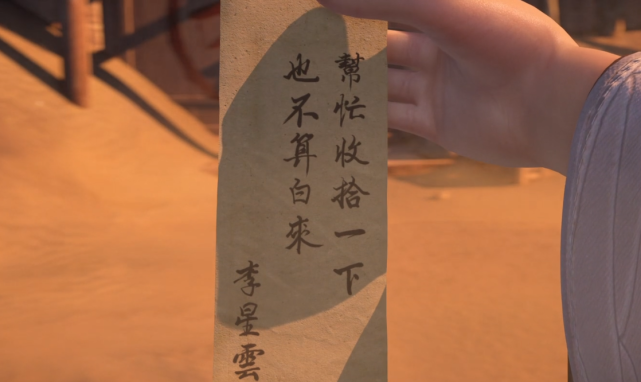 幫忙收拾一下
也不算白來
李星雲